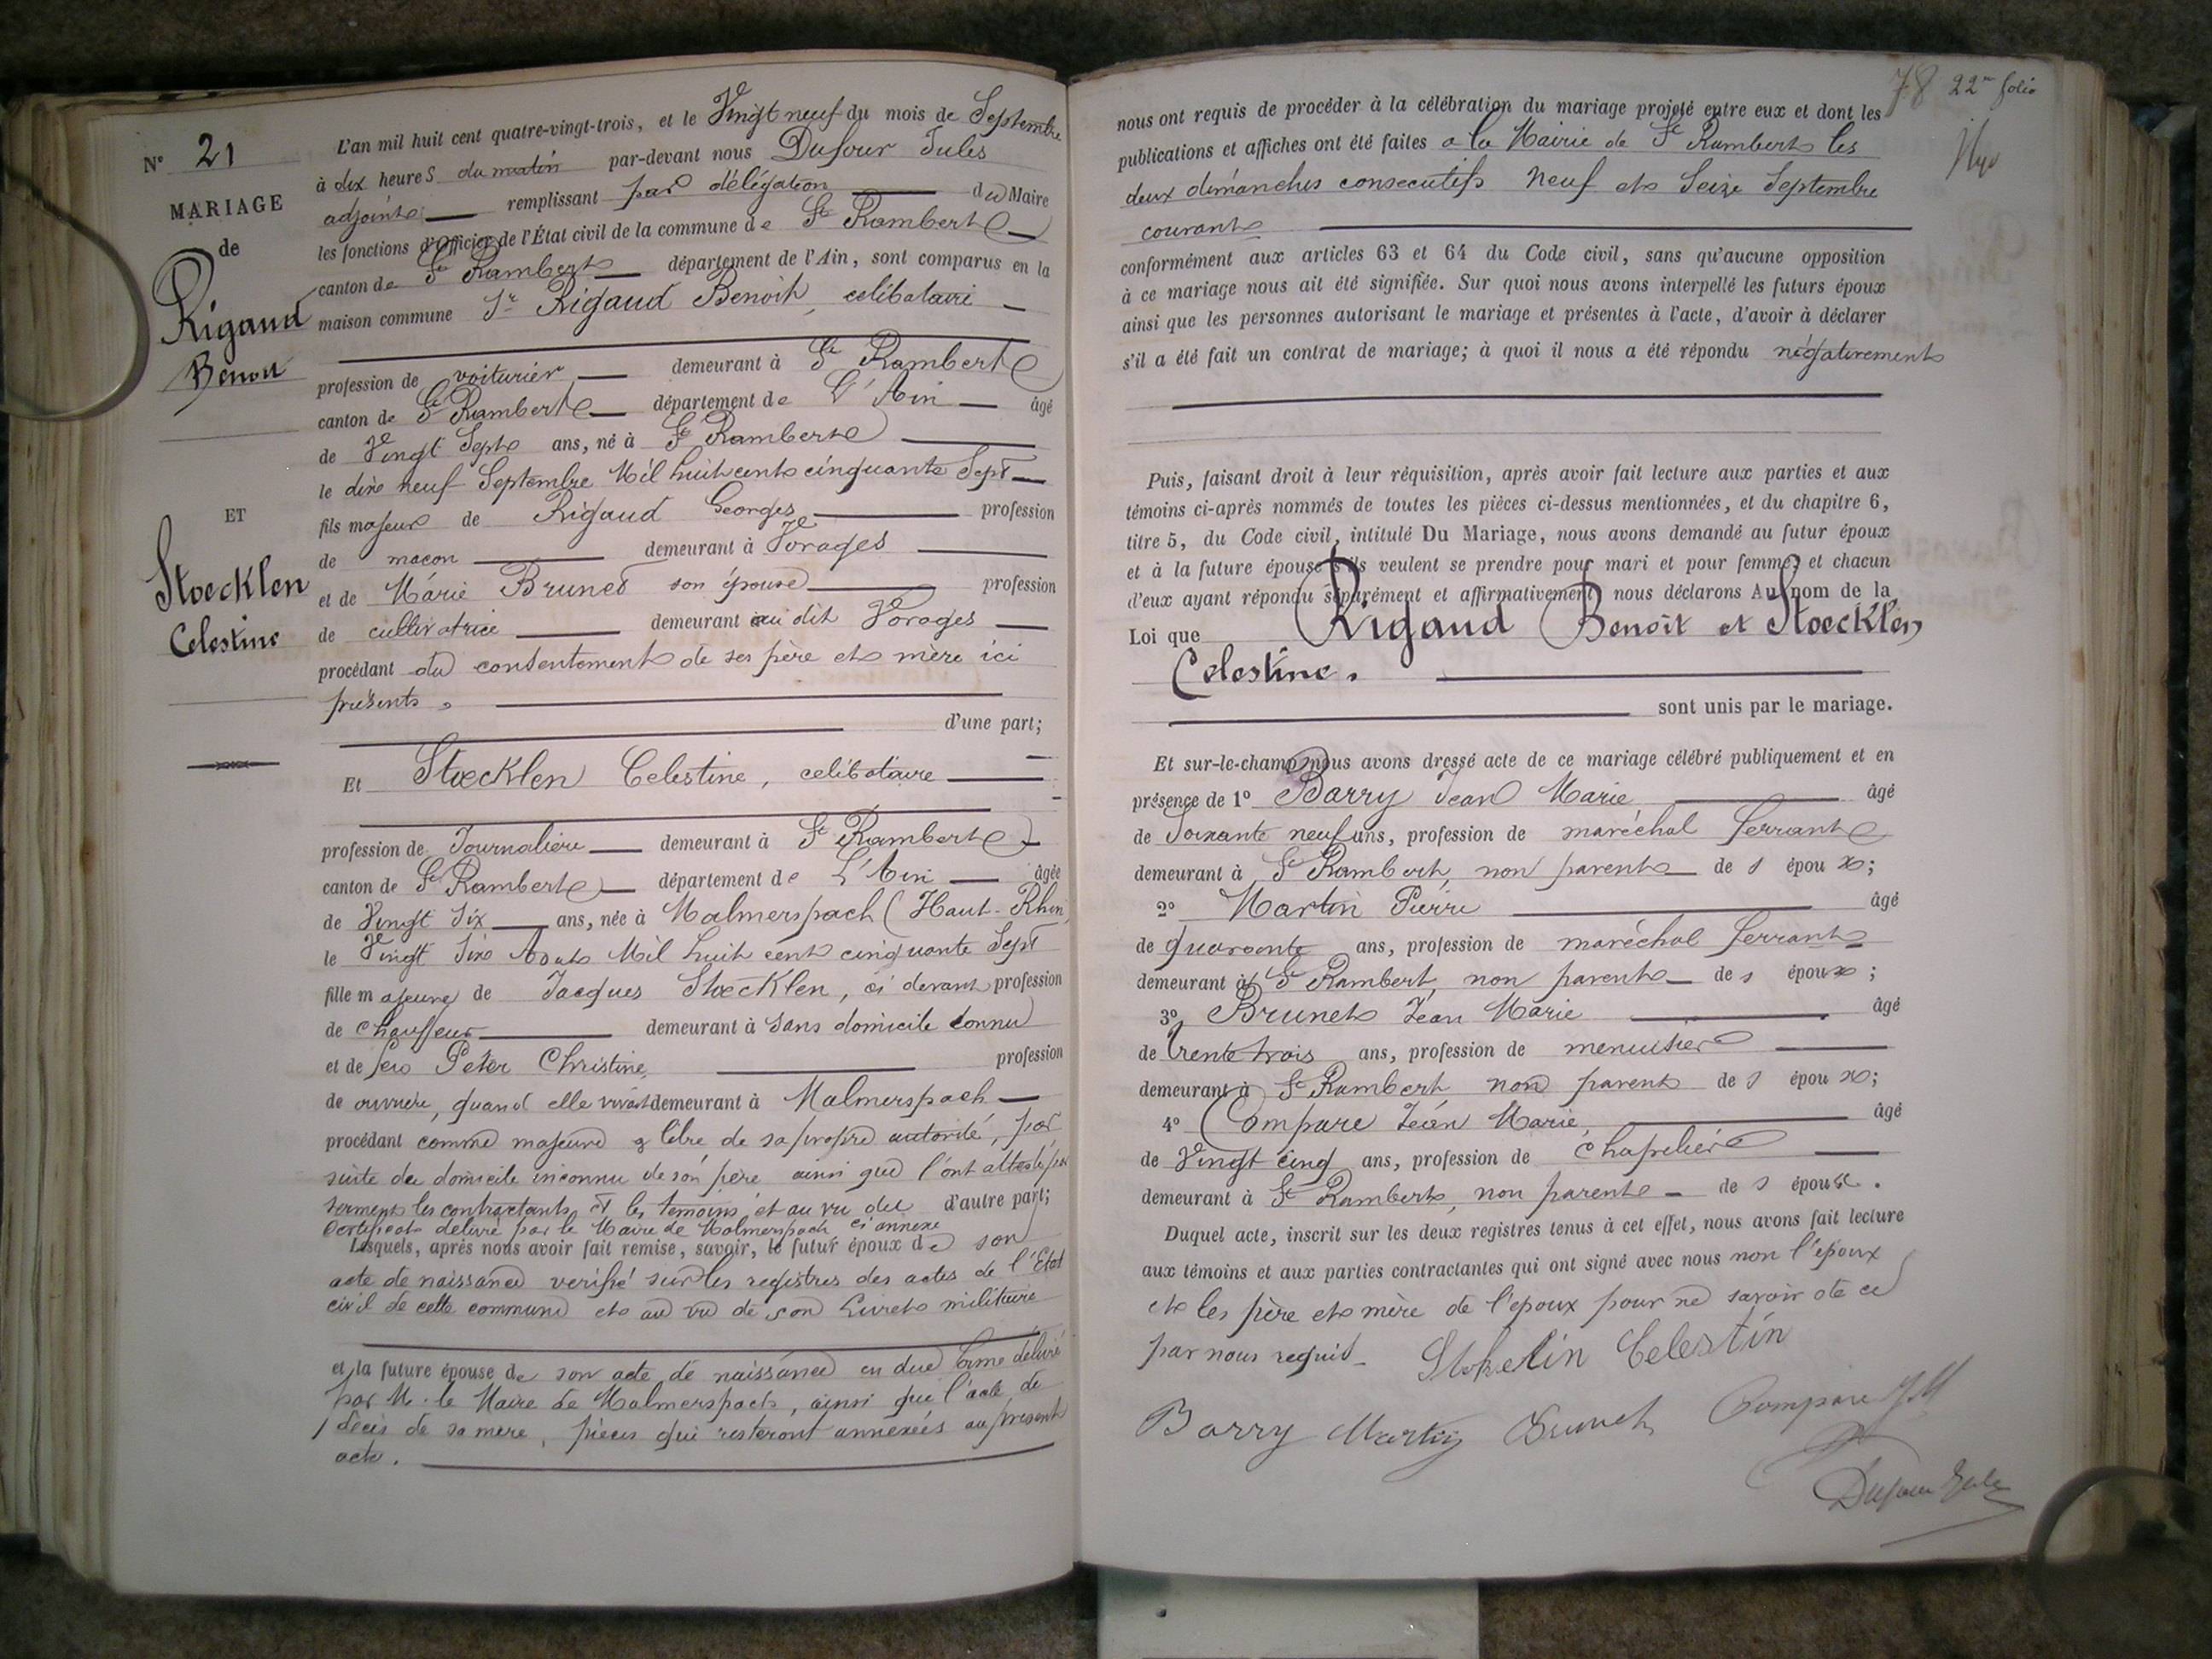 N° 21
MARIAGE
de
Rigaud
Benoit
ET
Stoecklen
Celestine
L'an mil huit cent quatre-vingt-trois, et le Vingt neuf du mois de Septembre
à dix heures du matin par-devant nous Dufour Jules
adjoint remplissant par délégation du Maire
les fonctions d'Officier de l'État civil de la commune de St Rambert
canton de St Rambert département de l'Ain, sont comparus en la
maison commune Sr Rigaud Benoit, celibataire
profession de voiturier demeurant à St Rambert
canton de St Rambert département de L'Ain âgé
de Vingt Sept ans, né à St Rambert
le dix neuf Septembre Mil huit cent cinquante Sept
fils majeur de Rigaud Georges profession
de maçon demeurant à Vorages
et de Marie Brunet son épouse profession
de cultivatrice demeurant au dit Vorages
procédant du consentement de ses père et mère ici
présents.
d'une part;
Et Stoecklen Celestine, celibataire
profession de Journalière demeurant à St Rambert
canton de St Rambert département de L'Ain âgée
de Vingt Six ans, née à Malmerspach (Haut-Rhin)
le Vingt Six Aout Mil huit cent cinquante Sept
fille majeure de Jacques Stoecklen, ci devant profession
de chauffeur demeurant à sans domicile connu
et de feu Peter Christine, profession
de ouvrière, quand elle vivait demeurant à Malmerspach
procédant comme majeure & libre de sa propre autorité, par
suite du domicile inconnu de son père ainsi que l'ont attesté par
serment les contractants et les témoins et au vu du d'autre part;
certificat délivré par le Maire de Malmerspach ci annexé
Lesquels, après nous avoir fait remise, savoir, le futur époux de son
acte de naissance verifié sur les registres des actes de l'Etat
civil de cette commune et au vu de son Livret militaire
et la future épouse de son acte de naissance en due forme délivré
par M. le Maire de Malmerspach, ainsi que l'acte de
décès de sa mère, pièces qui resteront annexées au présent
acte.
78 22me folio
nous ont requis de procéder à la célébration du mariage projeté entre eux et dont les
publications et affiches ont été faites a la Mairie de St Rambert les
deux dimanches consecutifs neuf et Seize Septembre
courant
conformément aux articles 63 et 64 du Code civil, sans qu'aucune opposition
à ce mariage nous ait été signifiée. Sur quoi nous avons interpellé les futurs époux
ainsi que les personnes autorisant le mariage et présentes à l'acte, d'avoir à déclarer
s'il a été fait un contrat de mariage; à quoi il nous a été répondu négativement
Puis, faisant droit à leur réquisition, après avoir fait lecture aux parties et aux
témoins ci-après nommés de toutes les pièces ci-dessus mentionnées, et du chapitre 6,
titre 5, du Code civil, intitulé Du Mariage, nous avons demandé au futur époux
et à la future épouse s'ils veulent se prendre pour mari et pour femme; et chacun
d'eux ayant répondu séparément et affirmativement, nous déclarons Au nom de la
Loi que Rigaud Benoît et Stoecklen
Celestine.
sont unis par le mariage.
Et sur-le-champ nous avons dressé acte de ce mariage célébré publiquement et en
présence de 1° Barry Jean Marie âgé
de Soixante neuf ans, profession de maréchal ferrant
demeurant à St Rambert, non parent des époux;
2° Martin Pierre âgé
de quarante ans, profession de maréchal ferrant
demeurant à St Rambert, non parent des époux;
3° Brunet Jean Marie âgé
de trente trois ans, profession de menuisier
demeurant à St Rambert, non parent des époux;
4° Compare Jean Marie, âgé
de Vingt cinq ans, profession de chapelier
demeurant à St Rambert, non parent des époux.
Duquel acte, inscrit sur les deux registres tenus à cet effet, nous avons fait lecture
aux témoins et aux parties contractantes qui ont signé avec nous non l'époux
et les père et mère de l'epoux pour ne savoir de ce
par nous requis
Stokelin Celestin
Barry Martin Brunet Compare J M
Dufour Jules